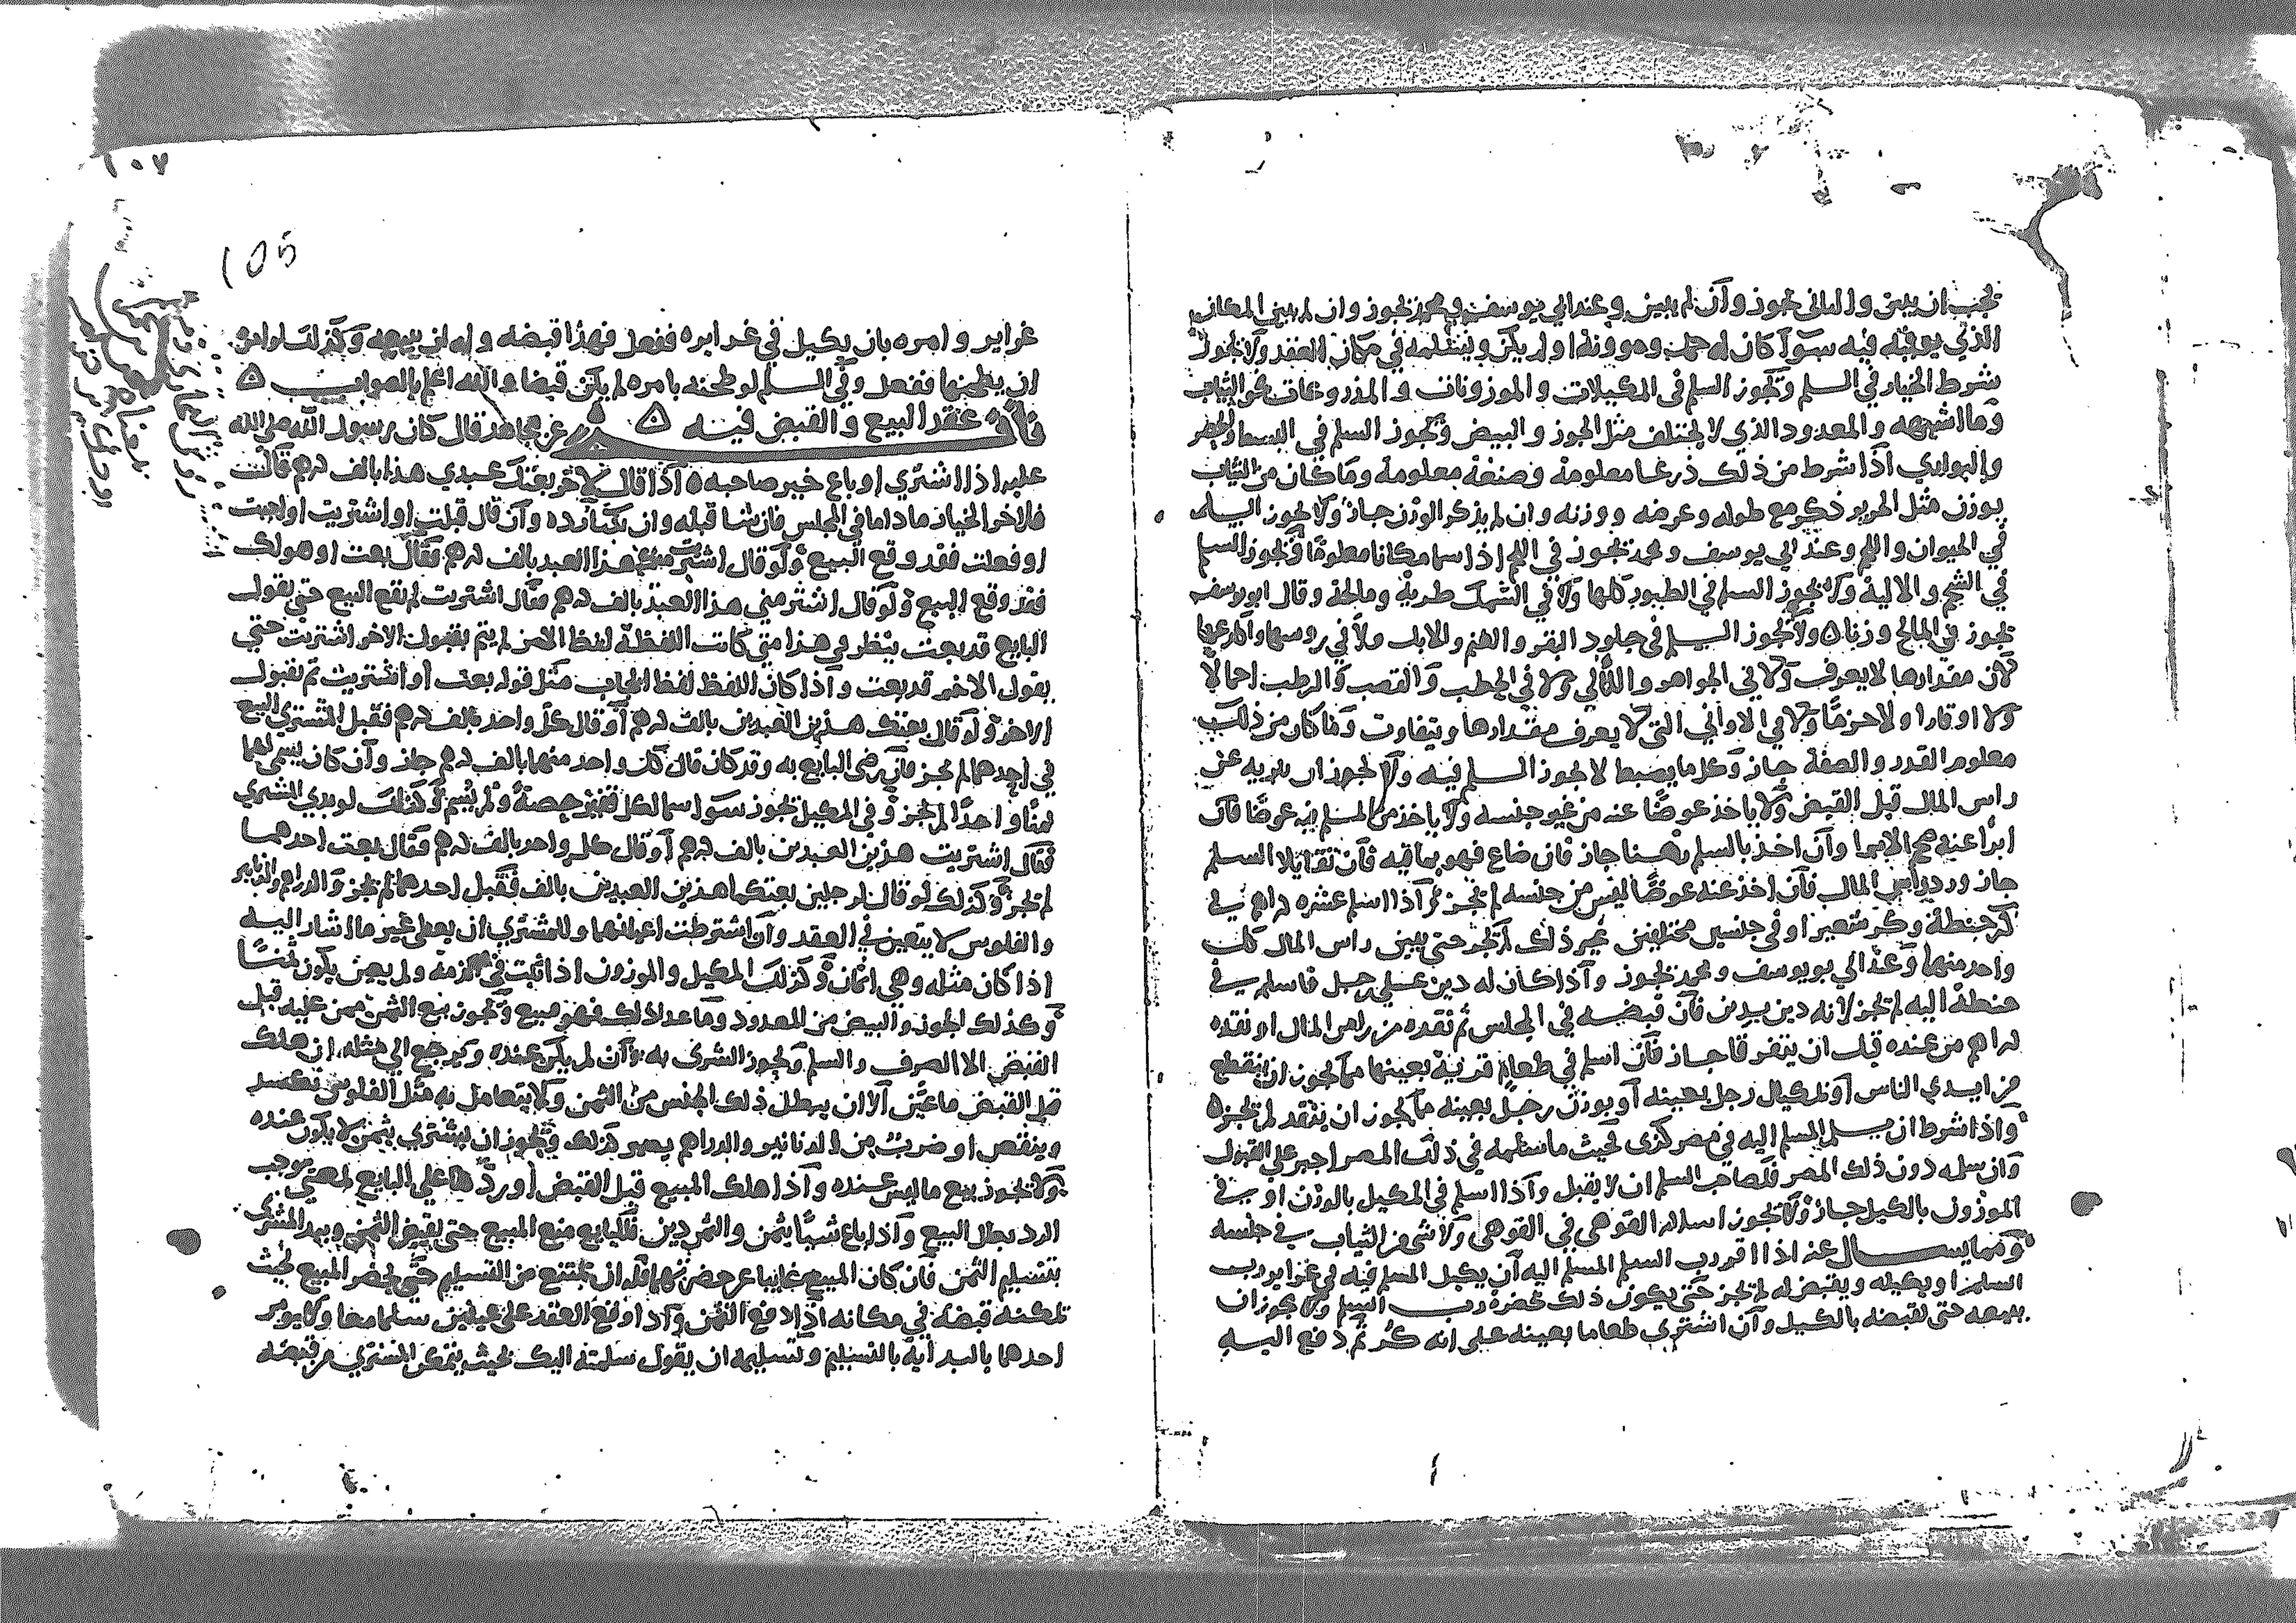 يجب ان يبين و الثاني يجوز وان لم يبين وعند ابي يوسف ومحمد يجوز وان لم يبين المكان
الذي يوفيه فيه سوآ كان له حمل وموونة او لم يكن ويسلمه في مكان العقد ولا يجوز
شرط الخيار في السلم ويجوز السلم في المكيلات والموزونات والمذروعات كالثياب
وما اشبهه والمعدود الذي لا يختلف مثل الجوز والبيض ويجوز السلم في البسط والحصر
والبواري اذا شرط من ذلك ذرعا معلومة وصنعة معلومة وما كان من الثياب
يوزن مثل الحرير ذكر مع طوله وعرضه ووزنه وان لم يذكر الوزن جاز ولا يجوز السلم
في الحيوان واللحم وعند ابي يوسف ومحمد يجوز في اللحم اذا سما مكانا معلوما ويجوز السلم
في الشحم والالية ولا يجوز السلم في الطيور كلها ولا في السمك طرية ومالحة وقال ابو يوسف
يجوز في المالح وزنا ولا يجوز السلم في جلود البقر والغنم والابل ولا في روسها واكارعها
لان مقدارها لا يعرف ولا في الجواهر واللآلي ولا في الحطب والقصب والرطب احمالا
ولا اوقارا ولا حزما ولا في الاواني التي لا يعرف مقدارها ويتفاوت وما كان من ذلك
معلوم القدر والصفة جاز وكل ما يضبط لا يجوز السلم فيه ولا يجوز ان يبريه عن
راس المال قبل القبض ولا ياخذ عوضا عنه من غير جنسه ولا ياخذ من المسلم فيه عوضا فان
ابرا عنه صح الابرا وان اخذ بالسلم رهنا جاز فان ضاع فهو بما فيه فان تقايلا السلم
جاز ورد راس المال فان اخذ عنه عوضا ليس من جنسه لم يجز واذا اسلم عشرة دراهم في
كر حنطة وكر شعير او في جنسين مختلفين غير ذلك لم يجز حتى يبين راس المال كل
واحد منها وعند ابي يوسف ومحمد يجوز واذا كان له دين على رجل فاسلم في
حنطة اليه لم يجز لانه دين بدين فان قبضه في المجلس ثم نقده من راس المال او نقده
دراهم من عنده قبل ان يتفرقا جاز فان اسلم في طعام قرية بعينها مما يجوز ان ينقطع
من ايدي الناس او بمكيال رجل بعينه او بوزن رجل بعينه مما يجوز ان يفقد لم يجز
واذا شرط ان يسلم المسلم اليه في مصر كذى بحيث ما سلمه في ذلك المصر اجبر على القبول
وان سلمه دون ذلك المصر فلصاحب السلم ان لا يقبل واذا اسلم في المكيل بالوزن او في
الموزون بالكيل جاز ولا يجوز اسلام القوهي في القوهي ولا شي من الثياب في جنسه
ومما يسال عنه اذا امر رب السلم المسلم اليه ان يكيل المسلم فيه في غراير رب
السلم او يكيله ويقبض له لم يجز حتى يكون ذلك بحضرة رب السلم ولا يجوز ان
يبيعه حتى يقبضه بالكيل وان اشترى طعاما بعينه على انه كر ثم دفع اليه
١٠٧
105
غراير وامره بان يكيل في غرايره ففعل فهذا قبضه وله ان يبيعه وكذلك لو امره
ان يطحنها ففعل وفي السلم لو طحنه بامره لم يكن قبضا والله اعلم بالصواب
باب عقد البيع والقبض فيه عن مجاهد قال كان رسول الله صلى الله
عليه اذا اشترى او باع خير صاحبه اذا قال لاخر بعتك عبدي هذا بالف درهم قالت
فلاخر الخيار ما داما في المجلس فان شا قبله وان شا رده وان قال قبلت او اشتريت او اجبت
او فعلت فقد وقع البيع ولو قال اشتريت منك هذا العبد بالف درهم فقال بعت او هو لك
فقد وقع البيع ولو قال اشتر مني هذا العبد بالف درهم فقال اشتريت لم يقع البيع حتى يقول
البايع قد بعت ينظر في هذا متى كانت اللفظة لفظ الامر لم يتم بقبول الاخر اشتريت حتى
يقول الاخر قد بعت واذا كان اللفظ لفظ ايجاب مثل قوله بعت او اشتريت تم بقبول
الاخر ولو قال بعتك هذين العبدين بالف درهم او قال كل واحد بالف درهم فقبل المشتري البيع
في احدهما لم يجز فان رضي البايع به وقد كان قال كل واحد منهما بالف درهم جاز وان كان يسمي لهما
ثمنا واحدا لم يجز وفي المكيل يجوز سوآ سما لكل قفيز حصة او لم يسم وكذلك لو بدي المشتري
فقال اشتريت هذين العبدين بالف درهم او قال كل واحد بالف درهم فقال بعت احدهما
لم يجز وكذلك لو قال لرجلين بعتكما هذين العبدين بالف فقبل احدهما لم يجز والدراهم والدنانير
والفلوس لا يتعين في العقد وان اشترطت اعيانها وللمشتري ان يعطي غير ما اشار اليه
اذا كان مثله وهي اثمان وكذلك المكيل والموزون اذا ثبت في الذمة ولم يعين يكون ثمنا
وكذلك الجوز والبيض من المعدود وما عدا ذلك فهو مبيع ويجوز بيع الثمن ممن عليه قبل
القبض الا الصرف والسلم ويجوز الشرى به وان لم يكن عنده ويرجع الى مثله ان هلك
قبل القبض ما عين الا ان يبطل ذلك الجنس من الثمن ولا يتعامل به مثل الفلوس تكسد
وينقص او ضرب من الدنانير والدراهم يصير كذلك ويجوز ان يشتري بثمن لا يكون عنده
ولا يجوز بيع ما ليس عنده واذا هلك المبيع قبل القبض او ردها على البايع لمعنى يوجب
الرد بطل البيع واذا باع شيا بثمن والثمن دين فللبايع منع المبيع حتى يقبض الثمن ويبدا المشتري
بتسليم الثمن فان كان المبيع غايبا عن حضرتهما فله ان يمتنع من التسليم حتى يحضر المبيع بحيث
يمكنه قبضه في مكانه اذا دفع الثمن واذا وقع العقد على عينين سلما معا ولا يومر
احدهما بالبداية بالتسليم وتسليمه ان يقول سلمته اليك بحيث يتمكن المشتري من قبضه